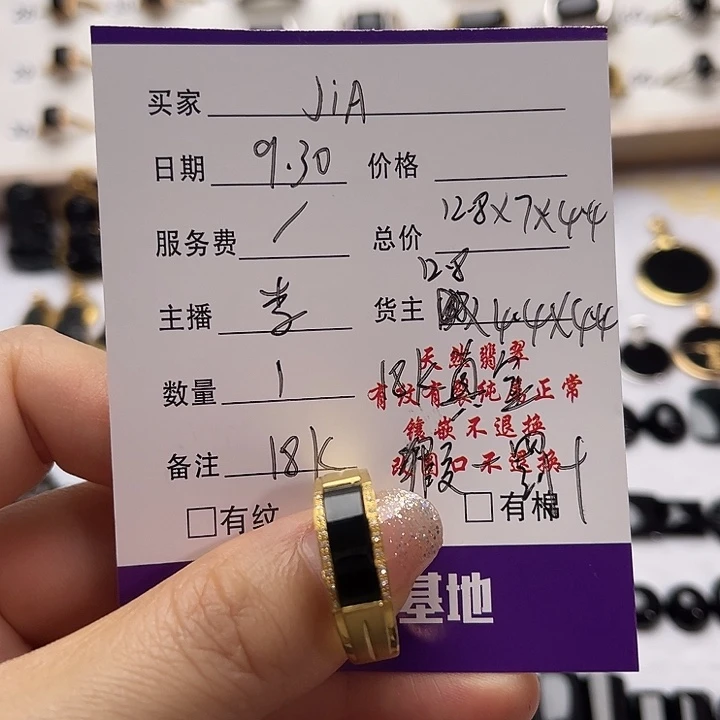 买家 JiA
日期 9.30 价格
12.8×7×4.4
服务费 / 总价
12.8
主播 李 货主 ×4.4×4.4
天然翡翠
数量 1 18K
有纹有裂纯属正常
镶嵌不退换
备注 18K 改圈口不退换
□有纹 □有棉
基地